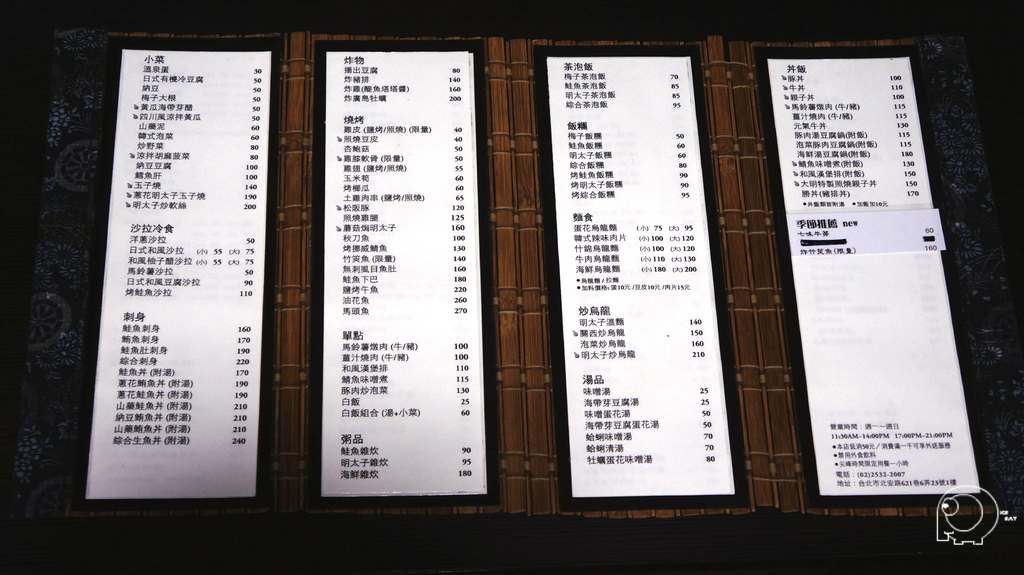 小菜
溫泉蛋 30
日式有機冷豆腐 50
納豆 50
梅子大根 50
黃瓜海帶芽醋 50
四川風涼拌黃瓜 50
山藥泥 60
韓式泡菜 60
炒野菜 80
涼拌胡麻菠菜 80
納豆豆腐 100
鱈魚肝 100
玉子燒 140
蔥花明太子玉子燒 190
明太子炒軟絲 200
沙拉冷食
洋蔥沙拉 50
日式和風沙拉 (小) 55 (大) 75
和風柚子醋沙拉 (小) 55 (大) 75
馬鈴薯沙拉 50
日式和風豆腐沙拉 90
烤鮭魚沙拉 110
刺身
鮭魚刺身 160
鮪魚刺身 170
鮭魚肚刺身 190
綜合刺身 220
鮭魚丼 (附湯) 170
蔥花鮪魚丼 (附湯) 190
蔥花鮭魚丼 (附湯) 190
山藥鮭魚丼 (附湯) 210
納豆鮪魚丼 (附湯) 210
山藥鮪魚丼 (附湯) 210
綜合生魚丼 (附湯) 240
炸物
揚出豆腐 80
炸豬排 140
炸雞(鯷魚塔塔醬) 160
炸廣島牡蠣 200
燒烤
雞皮 (鹽烤/照燒) (限量) 40
照燒豆皮 40
杏鮑菇 50
雞膝軟骨 (限量) 50
雞翅 (鹽烤/照燒) 55
玉米筍 60
烤櫛瓜 60
土雞肉串 (鹽烤/照燒) 65
松阪豚 120
照燒雞腿 125
蘑菇焗明太子 160
秋刀魚 100
烤挪威鯖魚 130
竹筴魚 (限量) 140
無刺虱目魚肚 160
鮭魚下巴 180
鹽烤午魚 220
油花魚 260
馬頭魚 270
單點
馬鈴薯燉肉 (牛/豬) 100
薑汁燒肉 (牛/豬) 100
和風漢堡排 110
鯖魚味噌煮 115
豚肉炒泡菜 130
白飯 25
白飯組合 (湯+小菜) 60
粥品
鮭魚雜炊 90
明太子雜炊 95
海鮮雜炊 180
茶泡飯
梅子茶泡飯 70
鮭魚茶泡飯 85
明太子茶泡飯 85
綜合茶泡飯 95
飯糰
梅子飯糰 50
鮭魚飯糰 60
明太子飯糰 60
綜合飯糰 80
烤鮭魚飯糰 90
烤明太子飯糰 90
烤綜合飯糰 95
麵食
蛋花烏龍麵 (小) 75 (大) 95
韓式辣味肉片 (小) 100 (大) 120
什錦烏龍麵 (小) 100 (大) 120
牛肉烏龍麵 (小) 110 (大) 130
海鮮烏龍麵 (小) 180 (大) 200
●烏龍麵 / 拉麵
●加料價格: 蛋10元 /豆皮10元 /肉片15元
炒烏龍
明太子溫麵 140
關西炒烏龍 150
泡菜炒烏龍 160
明太子炒烏龍 210
湯品
味噌湯 25
海帶芽豆腐湯 25
味噌蛋花湯 50
海帶芽豆腐蛋花湯 50
蛤蜊味噌湯 70
蛤蜊清湯 70
牡蠣蛋花味噌湯 80
丼飯
豚丼 100
牛丼 110
親子丼 100
馬鈴薯燉肉 (牛/豬) 115
薑汁燒肉 (牛/豬) 115
元氣牛丼 130
豚肉湯豆腐鍋(附飯) 115
泡菜豚肉豆腐鍋(附飯) 115
海鮮湯豆腐鍋(附飯) 180
鯖魚味噌煮(附飯) 130
和風漢堡排(附飯) 150
大明特製照燒親子丼 150
勝丼(豬排丼) 170
●丼飯類皆附湯 ●加飯加10元
季節推薦 new
七味牛蒡 60
炸竹筴魚(限量) 160
營業時間：週一～週日
11:30AM-14:00PM 17:00PM-21:00PM
●本店低消50元／消費滿一千可享外送服務
●禁用外食飲料
●尖峰時間限定用餐一小時
電話：(02)2532-2007
地址：台北市北安路621巷6弄23號1樓
ICE
EAT